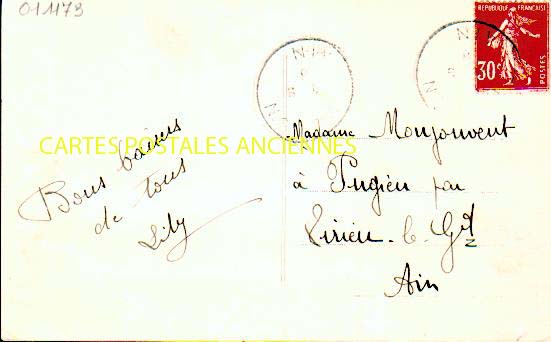 011173
RÉPUBLIQUE FRANÇAISE
30c
POSTES
CARTES POSTALES ANCIENNES
Bons baisers
de tous
Lily
Madame Monjouvent
à Pugieu par
Virieu-le-Gd
Ain